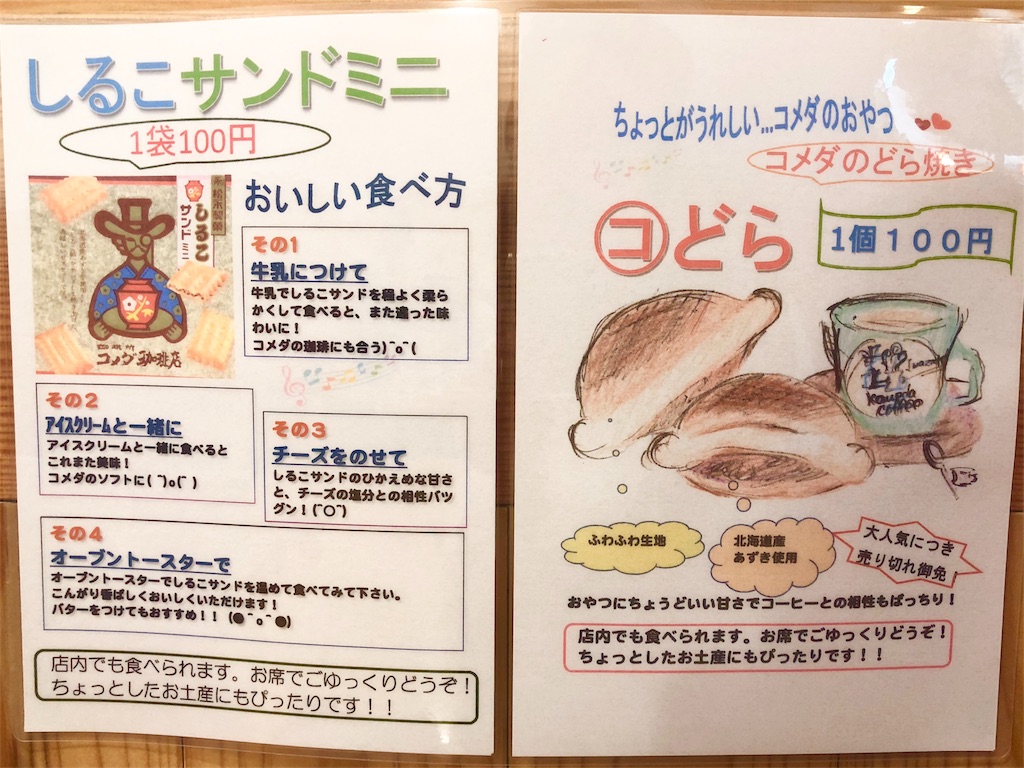 しるこサンドミニ
1袋100円
松永製菓
しるこ
サンドミニ
珈琲所
コメダ珈琲店
おいしい食べ方
その1
牛乳につけて
牛乳でしるこサンドを程よく柔ら
かくして食べると、また違った味
わいに！
コメダの珈琲にも合う)^o^(
その2
アイスクリームと一緒に
アイスクリームと一緒に食べると
これまた美味！
コメダのソフトに( ^)o(^ )
その3
チーズをのせて
しるこサンドのひかえめな甘さ
と、チーズの塩分との相性バツ
グン！(^○^)
その4
オーブントースターで
オーブントースターでしるこサンドを温めて食べてみて下さい。
こんがり香ばしくおいしくいただけます！
バターをつけてもおすすめ！！ (●＾o＾●)
店内でも食べられます。お席でごゆっくりどうぞ！
ちょっとしたお土産にもぴったりです！！
ちょっとがうれしい…コメダのおやつ
コメダのどら焼き
コどら
1個１００円
Komeda
coffee
ふわふわ生地
北海道産
あずき使用
大人気につき
売り切れ御免
おやつにちょうどいい甘さでコーヒーとの相性もばっちり！
店内でも食べられます。お席でごゆっくりどうぞ！
ちょっとしたお土産にもぴったりです！！